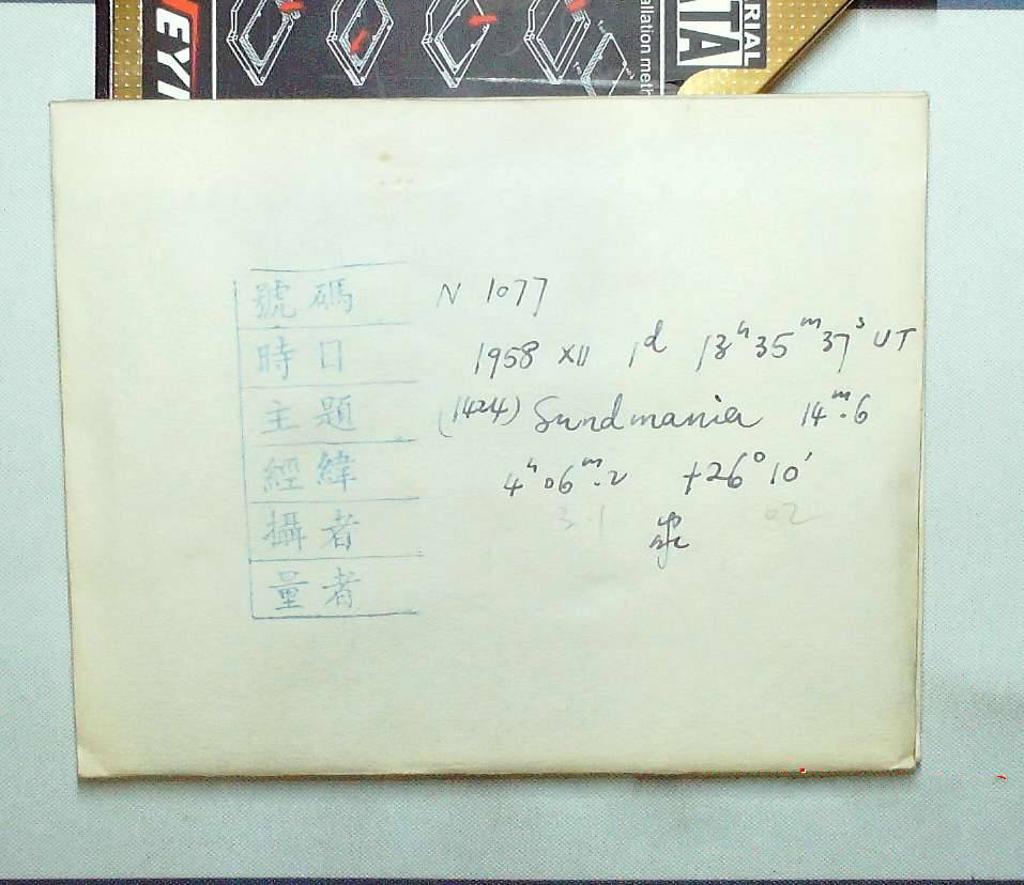 EY
allation meth
ATA
RIAL
號碼 N 1077
時日 1958 XII 1ᵈ 13ʰ35ᵐ37ˢ UT
主題 (1424) Sundmania 14ᵐ.6
經緯 4ʰ06ᵐ.2 +26°10'
3.1 02
攝者
量者